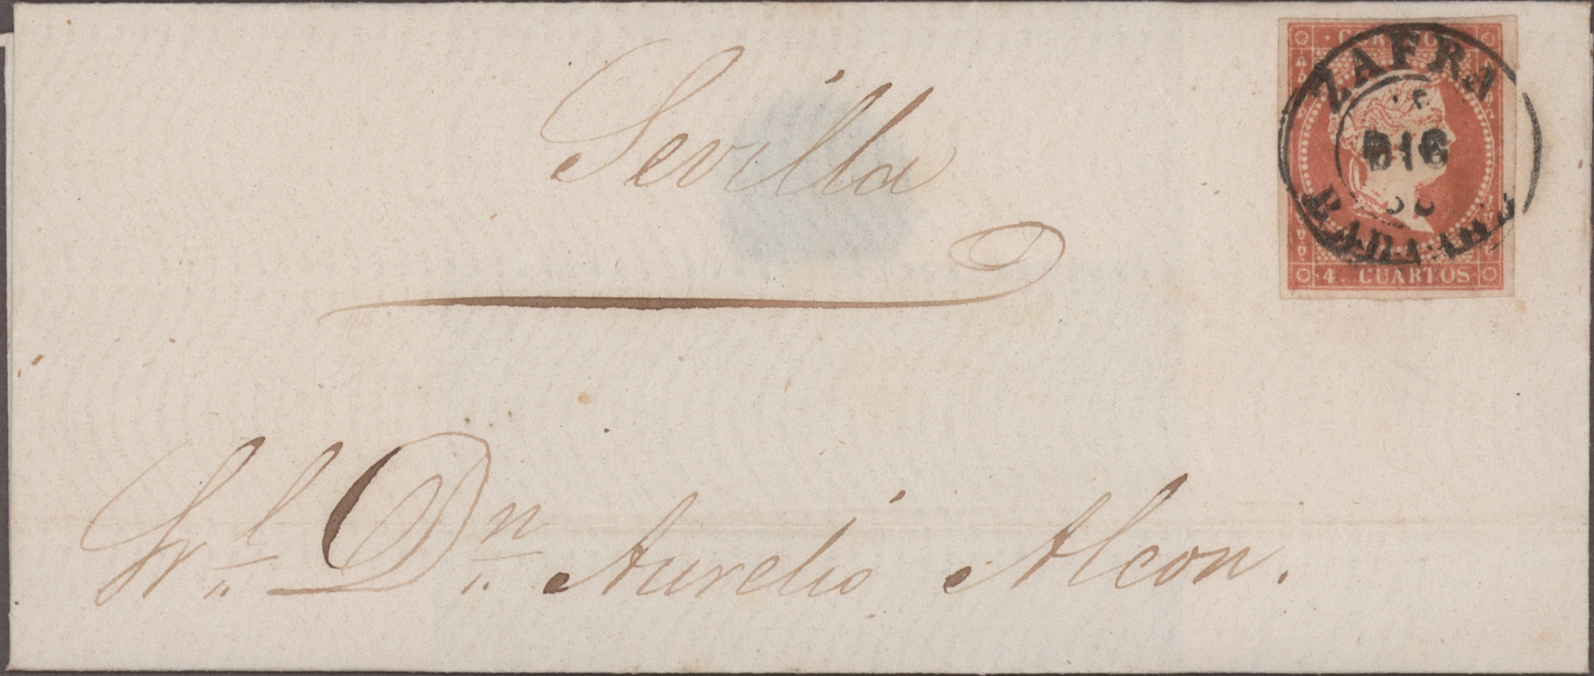 Sevilla
CORREOS
ZAFRA
DIC
BADAJOZ
4 CUARTOS
Sr. Dn. Aurelio Alcon.